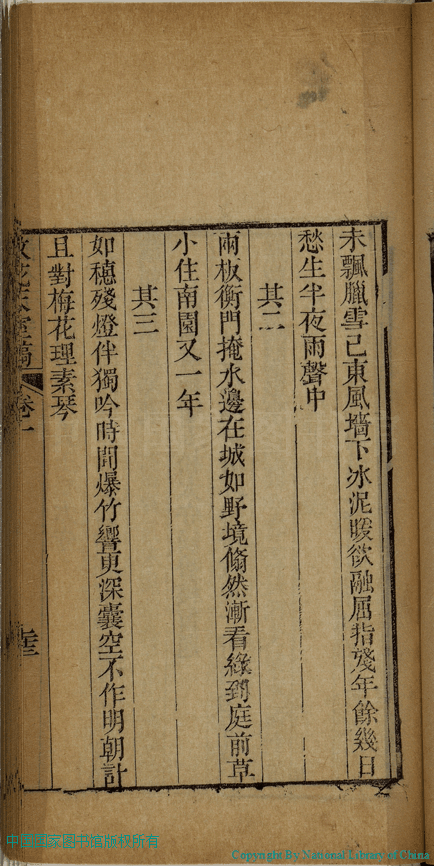 未飄臘雪已東風墻下冰泥暖欲融屈指殘年餘幾日
愁生半夜雨聲中
其二
兩板衡門掩水邊在城如野境翛然漸看綠到庭前草
小住南園又一年
其三
如穗殘燈伴獨吟時聞爆竹響更深囊空不作明朝計
且對梅花理素琴
卷一
中国国家图书馆版权所有
Copyright By National Library of China